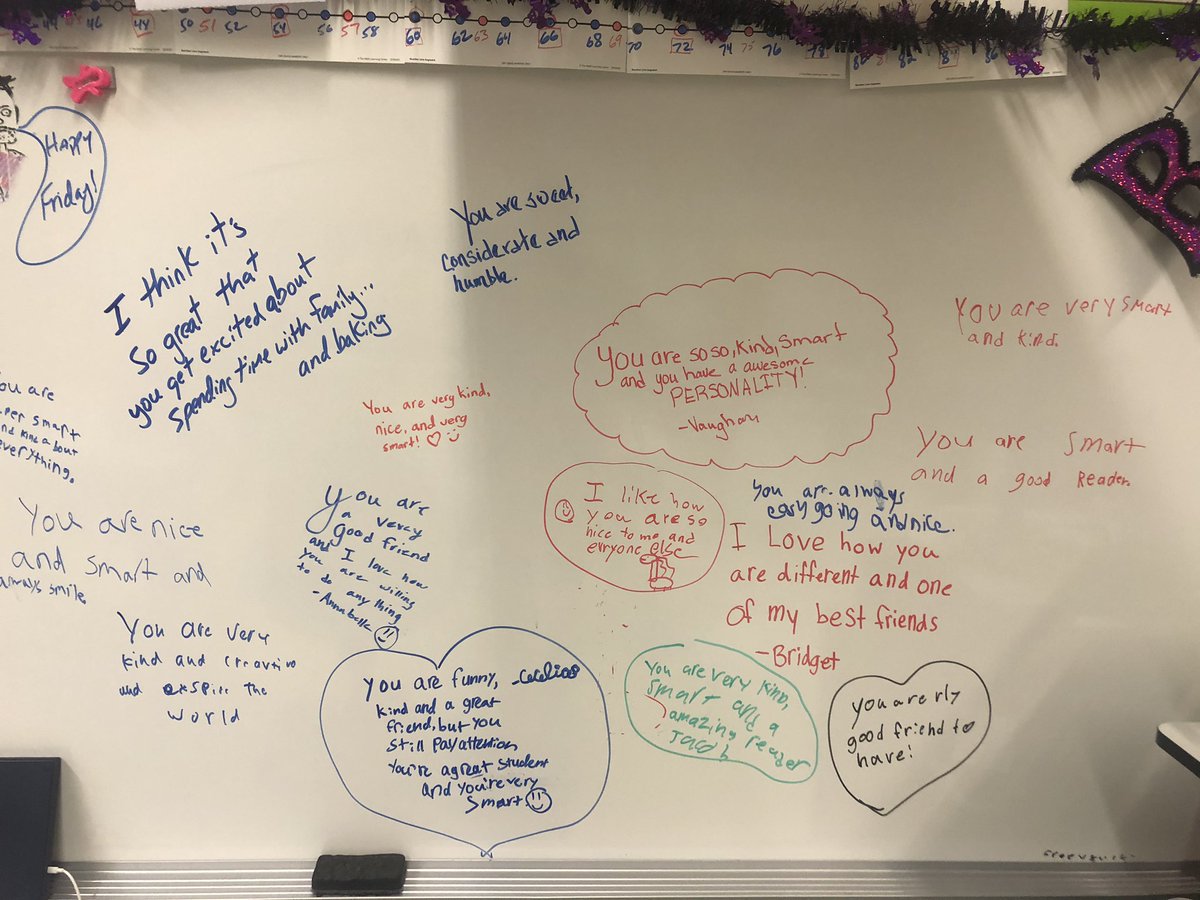 44 46 44 50 51 52 54 56 57 58 60 62 63 64 66 68 69 70 72 74 75 76 78 82
Happy
Friday!
I think it's
so great that
you get excited about
spending time with family...
and baking
You are sweet,
considerate and
humble.
You are so so, kind, smart
and you have a awesome
PERSONALITY!
-Vaughan
You are very smart
and kind.
You are very kind,
nice, and very
smart!
ou are
per smart
nd kind about
everything.
You are smart
and a good Reader
You are nice
and smart and
always smile.
You are
a verey
Good friend
and I love how
you are willing
to do any thing
-Annabelle
I like how
you are so
nice to me, and
everyone else
you are always
easy going and nice.
I Love how you
are different and one
of my best friends
-Bridget
You are very
kind and creative
and exspire the
world
You are funny, -Cecelia
kind and a great
friend, but you
still pay attention
You're a great student
and you're very
smart.
You are very kind,
smart and a
amazing reader
Jacob
you are rly
good friend to
have!